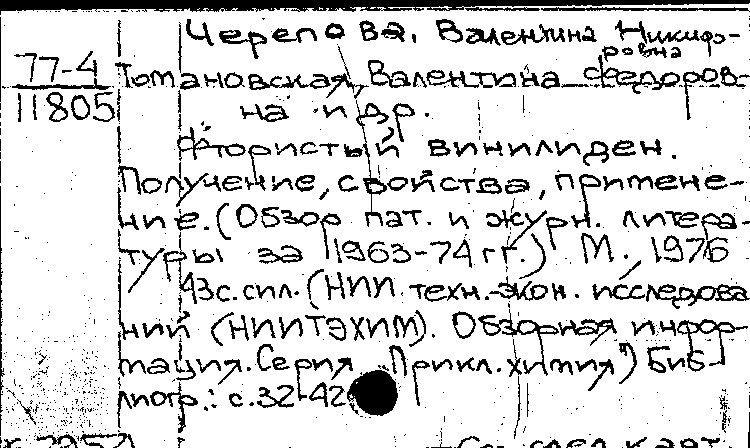 Черепова, Валентина Никифо-
ровна
77-4
11805
Томановская, Валентина Федоров-
на и др.
Фтористый винилиден.
Получение, свойства, примене-
ние. (Обзор пат. и журн. литера-
туры за 1963-74 гг.) М., 1976
43с. сил. (НИИ техн.-экон. исследова
ний (НИИТЭХИМ). Обзорная инфор-
мация. Серия "Прикл. химия") Биб-
лиогр.: с.32-42
См. след. карт.